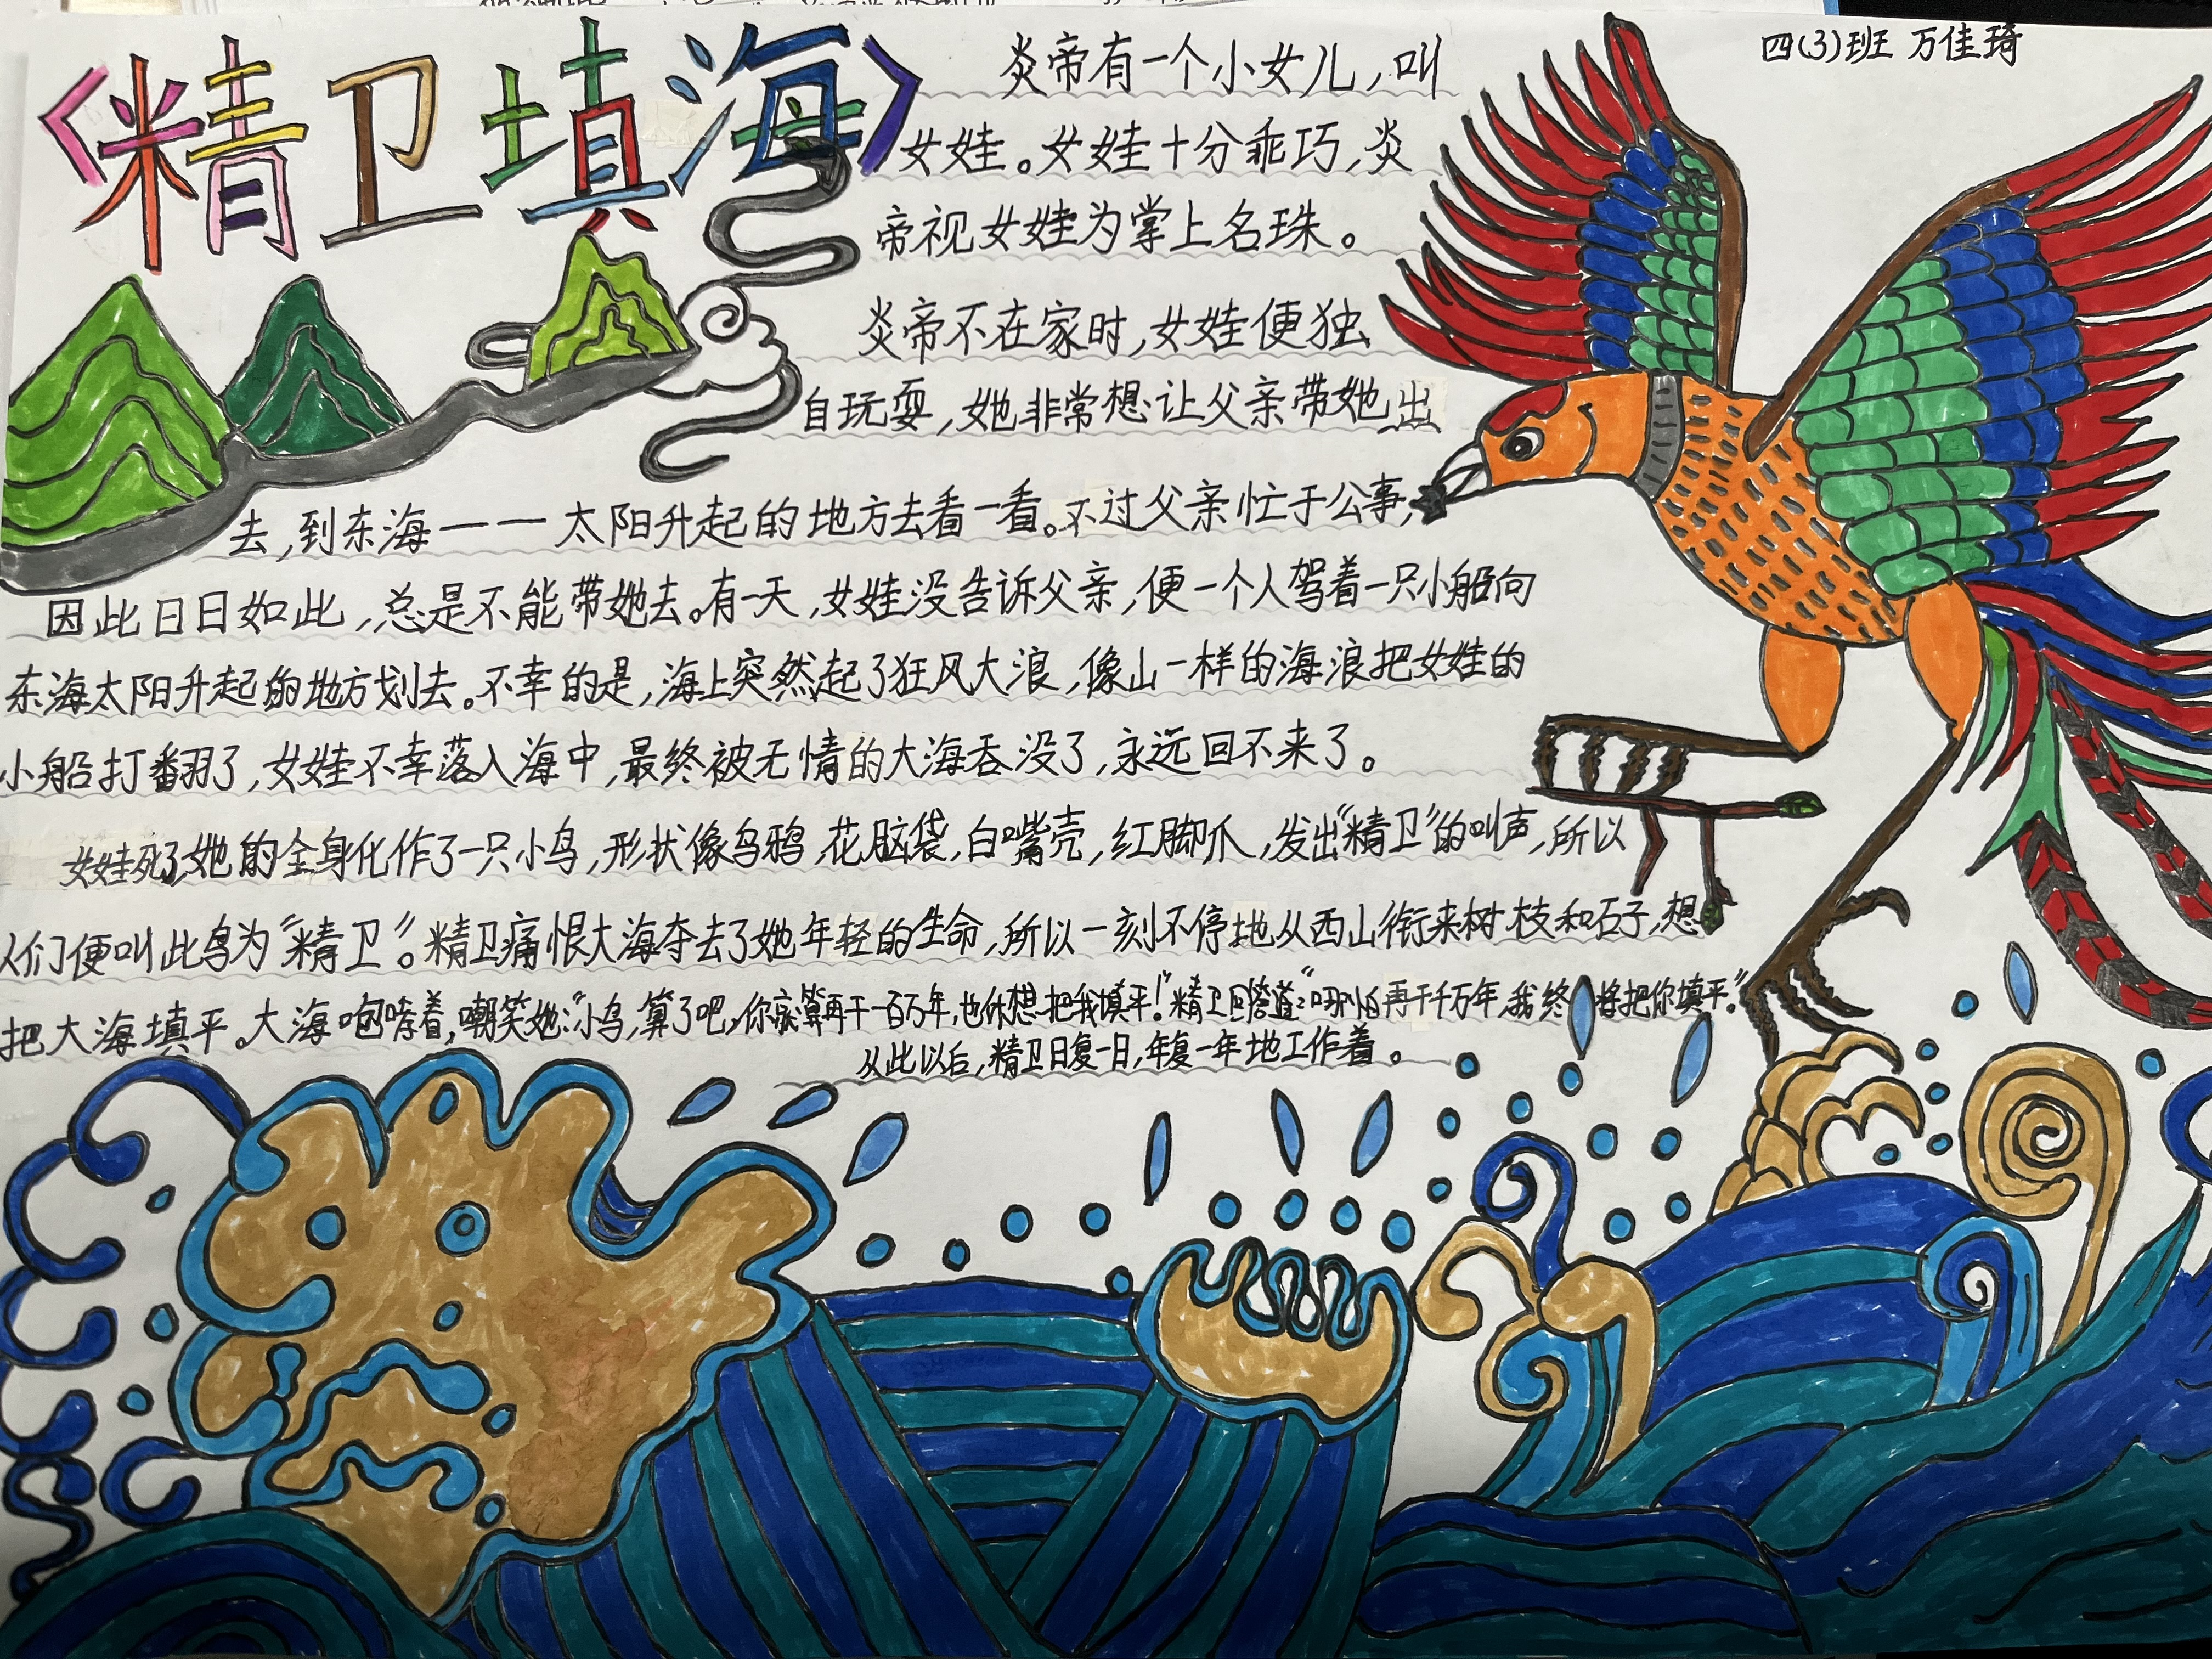 《精卫填海》
四(3)班 万佳琦
炎帝有一个小女儿,叫
女娃。女娃十分乖巧,炎
帝视女娃为掌上名珠。
炎帝不在家时,女娃便独
自玩耍,她非常想让父亲带她出
去,到东海——太阳升起的地方去看一看。不过父亲忙于公事,
因此日日如此,总是不能带她去。有一天,女娃没告诉父亲,便一个人驾着一只小船向
东海太阳升起的地方划去。不幸的是,海上突然起了狂风大浪,像山一样的海浪把女娃的
小船打翻了,女娃不幸落入海中,最终被无情的大海吞没了,永远回不来了。
女娃死了,她的全身化作了一只小鸟,形状像乌鸦,花脑袋,白嘴壳,红脚爪,发出“精卫”的叫声,所以
人们便叫此鸟为“精卫”。精卫痛恨大海夺去了她年轻的生命,所以一刻不停地从西山衔来树枝和石子,想
把大海填平。大海咆哮着,嘲笑她:“小鸟,算了吧,你就算再干一百万年,也休想把我填平!”精卫回答道:“哪怕再干千万年,我终将把你填平。”
从此以后,精卫日复一日,年复一年地工作着。